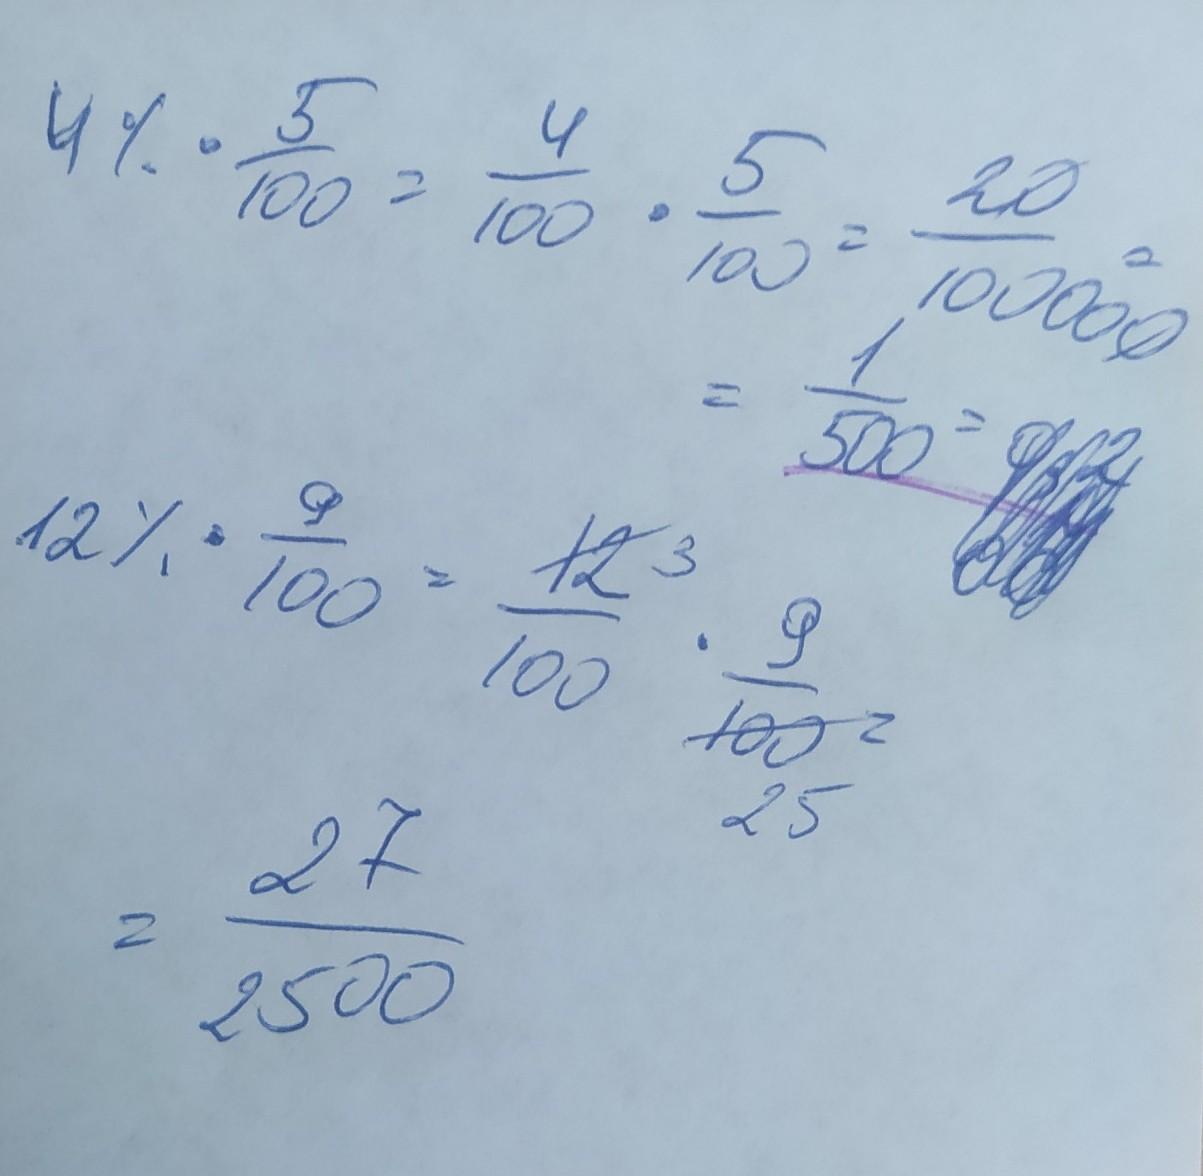 4% · 5/100 = 4/100 · 5/100 = 20/100000 =
= 1/500 =
12% · 9/100 = 12 3/100 · 9/100 25 =
= 27/2500